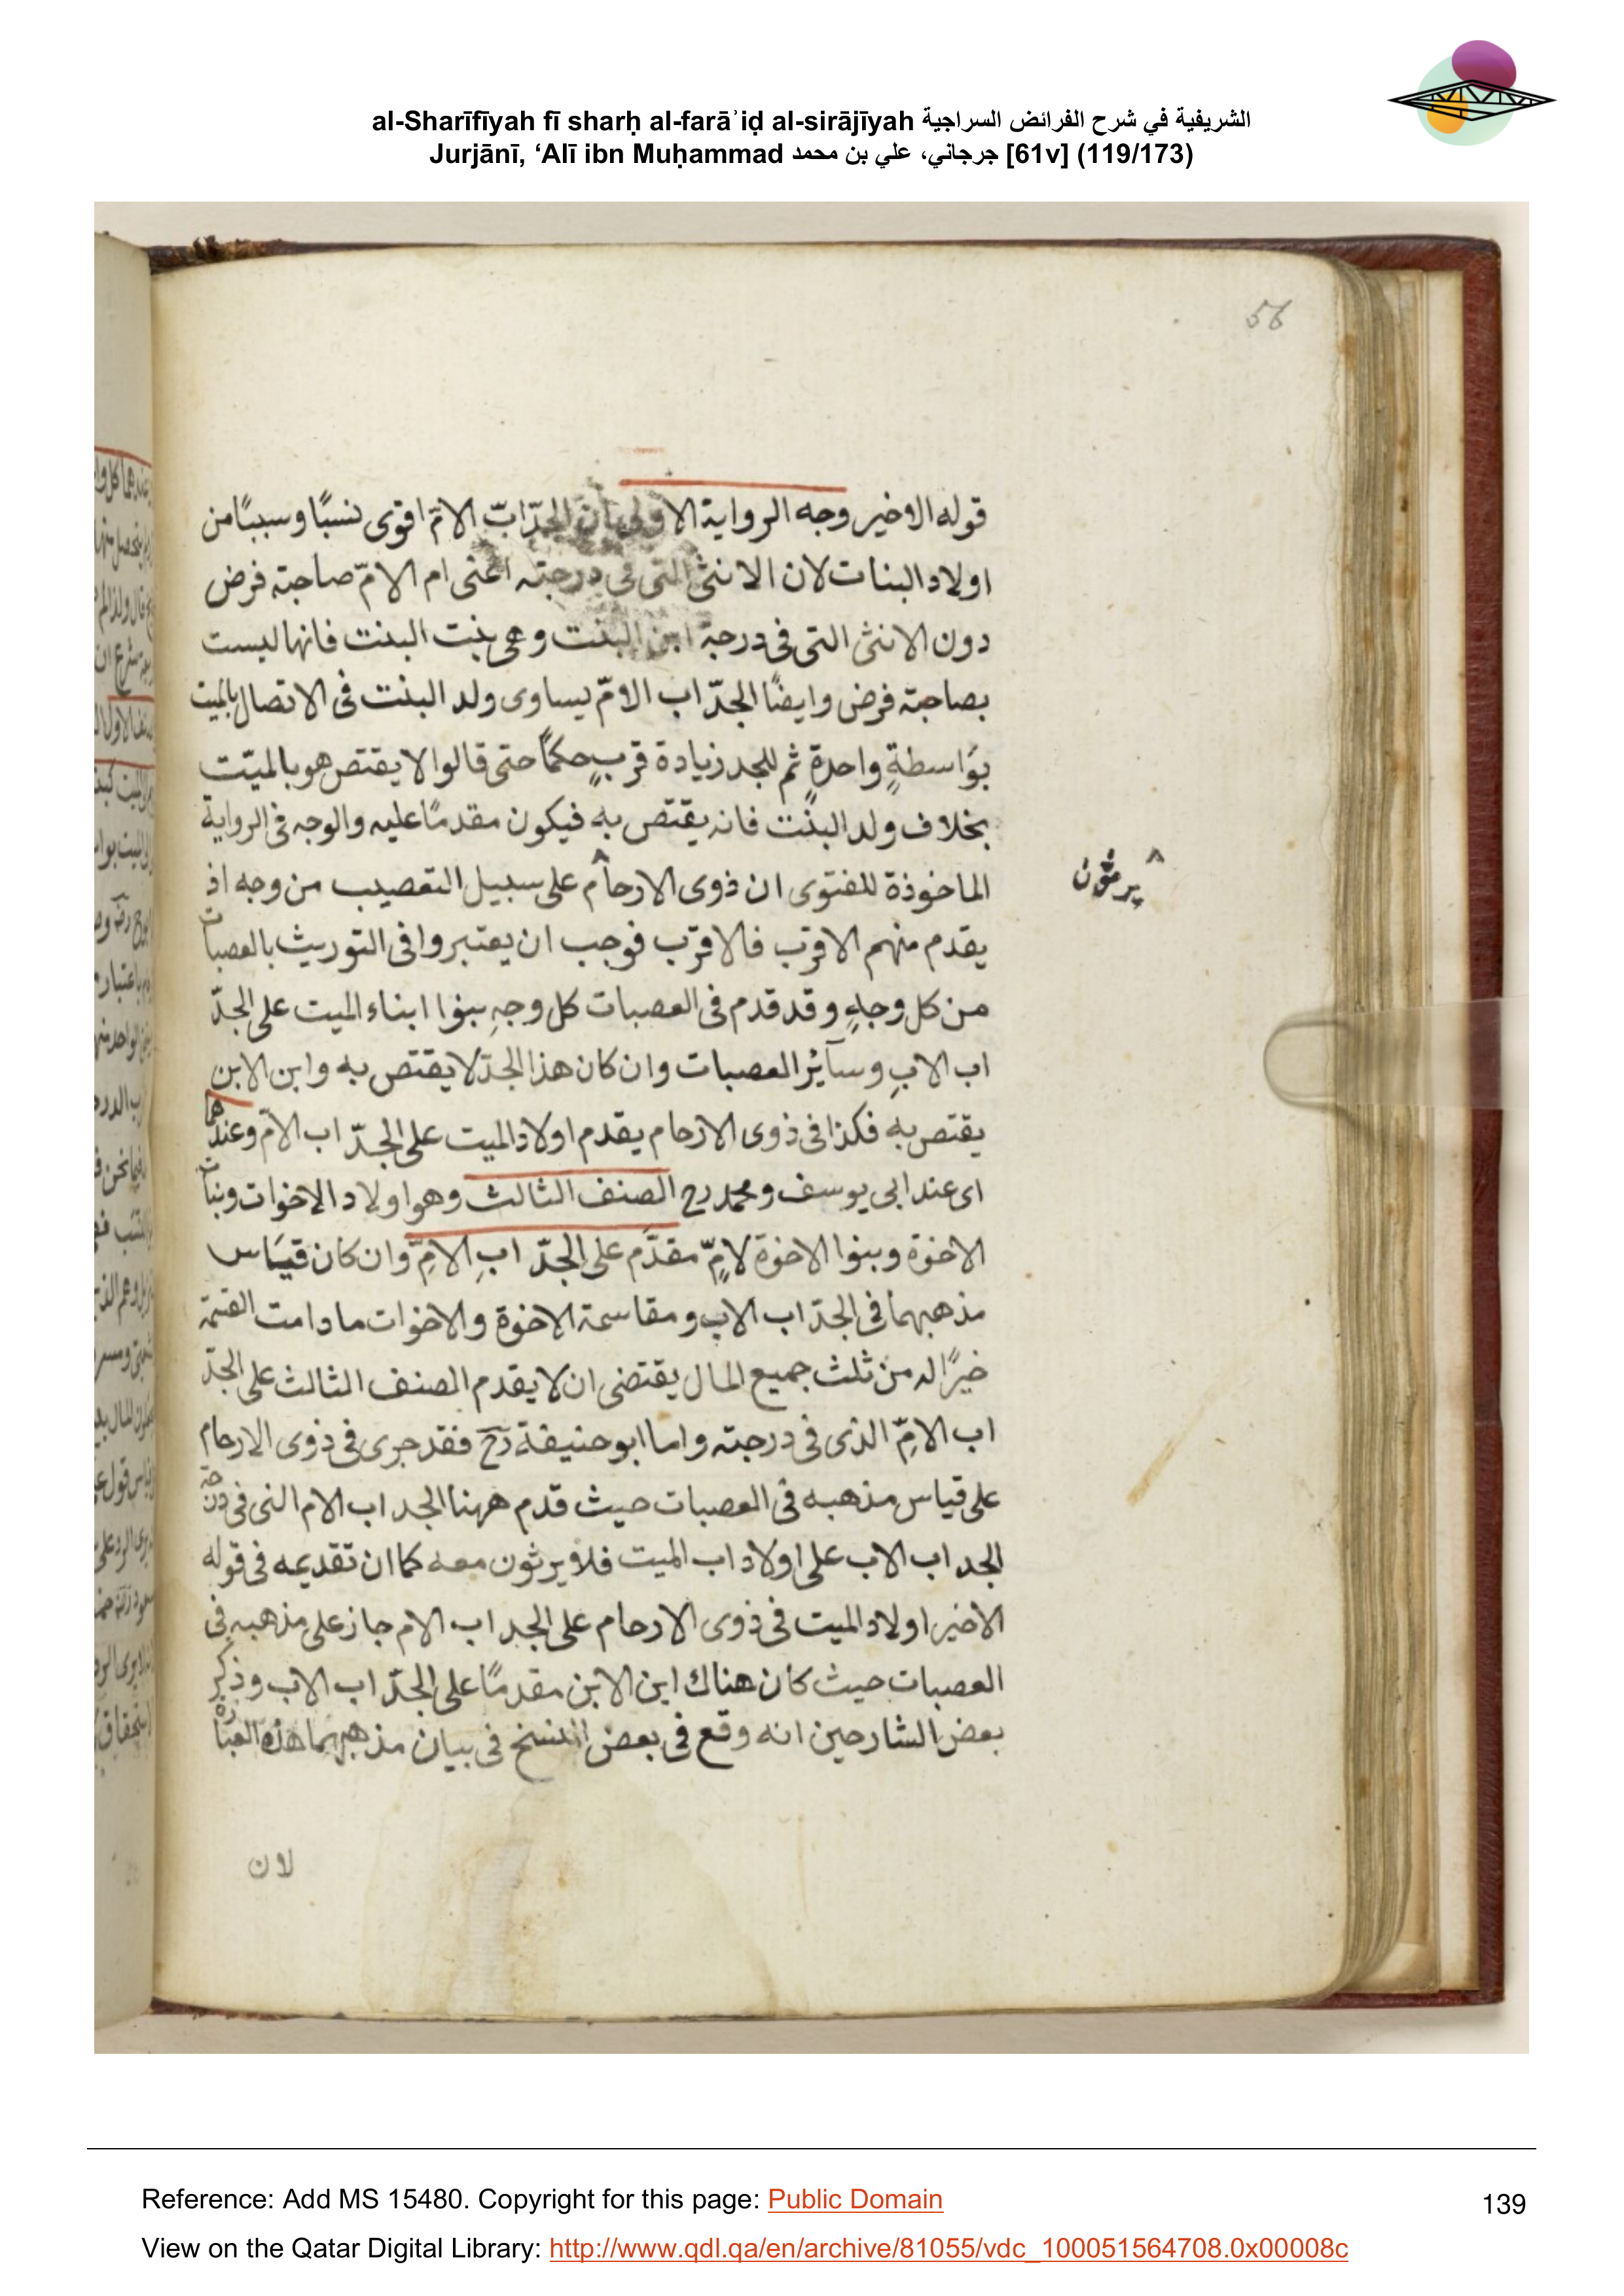 al-Sharīfīyah fī sharḥ al-farāʾiḍ al-sirājīyah الشريفية في شرح الفرائض السراجية
Jurjānī, ‘Alī ibn Muḥammad جرجاني، علي بن محمد [61v] (119/173)
56
قوله الاخير وجه الرواية الاولى بان الجدّ ابّ الامّ اقوى نسبًا وسببًا من
اولاد البنات لان الانثى التى فى درجته اعنى ام الامّ صاحبة فرض
دون الانثى التى فى درجة ابن البنت وهى بنت البنت فانها ليست
بصاحبة فرض وايضًا الجدّ اب الامّ يساوى ولد البنت فى الاتصال بالميت
بوَاسطةٍ واحدةٍ ثم للجد زيادة قربٍ حكمًا حتى قالوا لا يقتص هو بالميّت
بخلاف ولد البنت فانه يقتص به فيكون مقدمًا عليه والوجه فى الرواية
الماخوذة للفتوى ان ذوى الارحام على سبيل التعصيب من وجه اذ
^ يرثون
يقدم منهم الاقرب فالاقرّب فوجب ان يعتبروا فى التوريث بالعصبات
من كل وجهٍ وقد قدم فى العصبات كل وجهٍ بنوا ابناء الميت على الجدّ
اب الابِ وسآئر العصبات وان كان هذا الجدّ لا يقتص به وابن الابن
يقتص به فكذا فى ذوى الارحام يقدم اولاد الميت على الجدّ اب الامّ وعندهما
اى عند ابى يوسف ومحمد رح الصنف الثالث وهو اولاد الاخوات وبنات
الاخوة وبنوا الاخوة لامٍّ مقدَّم على الجدّ ابِ الامِّ وان كان قيَاس
مذهبهما فى الجدّ اب الاب ومقاسمة الاخوة والاخوات ما دامت القسمة
خيرًا له من ثلث جميع المال يقتضى ان لا يقدم الصنف الثالث على الجدّ
اب الامِّ الذى فى درجته واما ابو حنيفة رح فقد جرى فى ذوى الارحام
على قياس مذهبه فى العصبات حيث قدم ههنا الجد اب الام الذى فى درجة
الجد اب الاب على اولاد اب الميت فلا يرثون معه كما ان تقديمه فى قوله
الاخير اولاد الميت فى ذوى الارحام على الجد اب الام جاز على مذهبه فى
العصبات حيث كان هناك ابن الابن مقدمًا على الجدّ اب الاب وذكر
بعض الشارحين انه وقع فى بعض النسخ فى بيان مذهبهما هذه العبارة
لان
Reference: Add MS 15480. Copyright for this page: Public Domain
139
View on the Qatar Digital Library: http://www.qdl.qa/en/archive/81055/vdc_100051564708.0x00008c